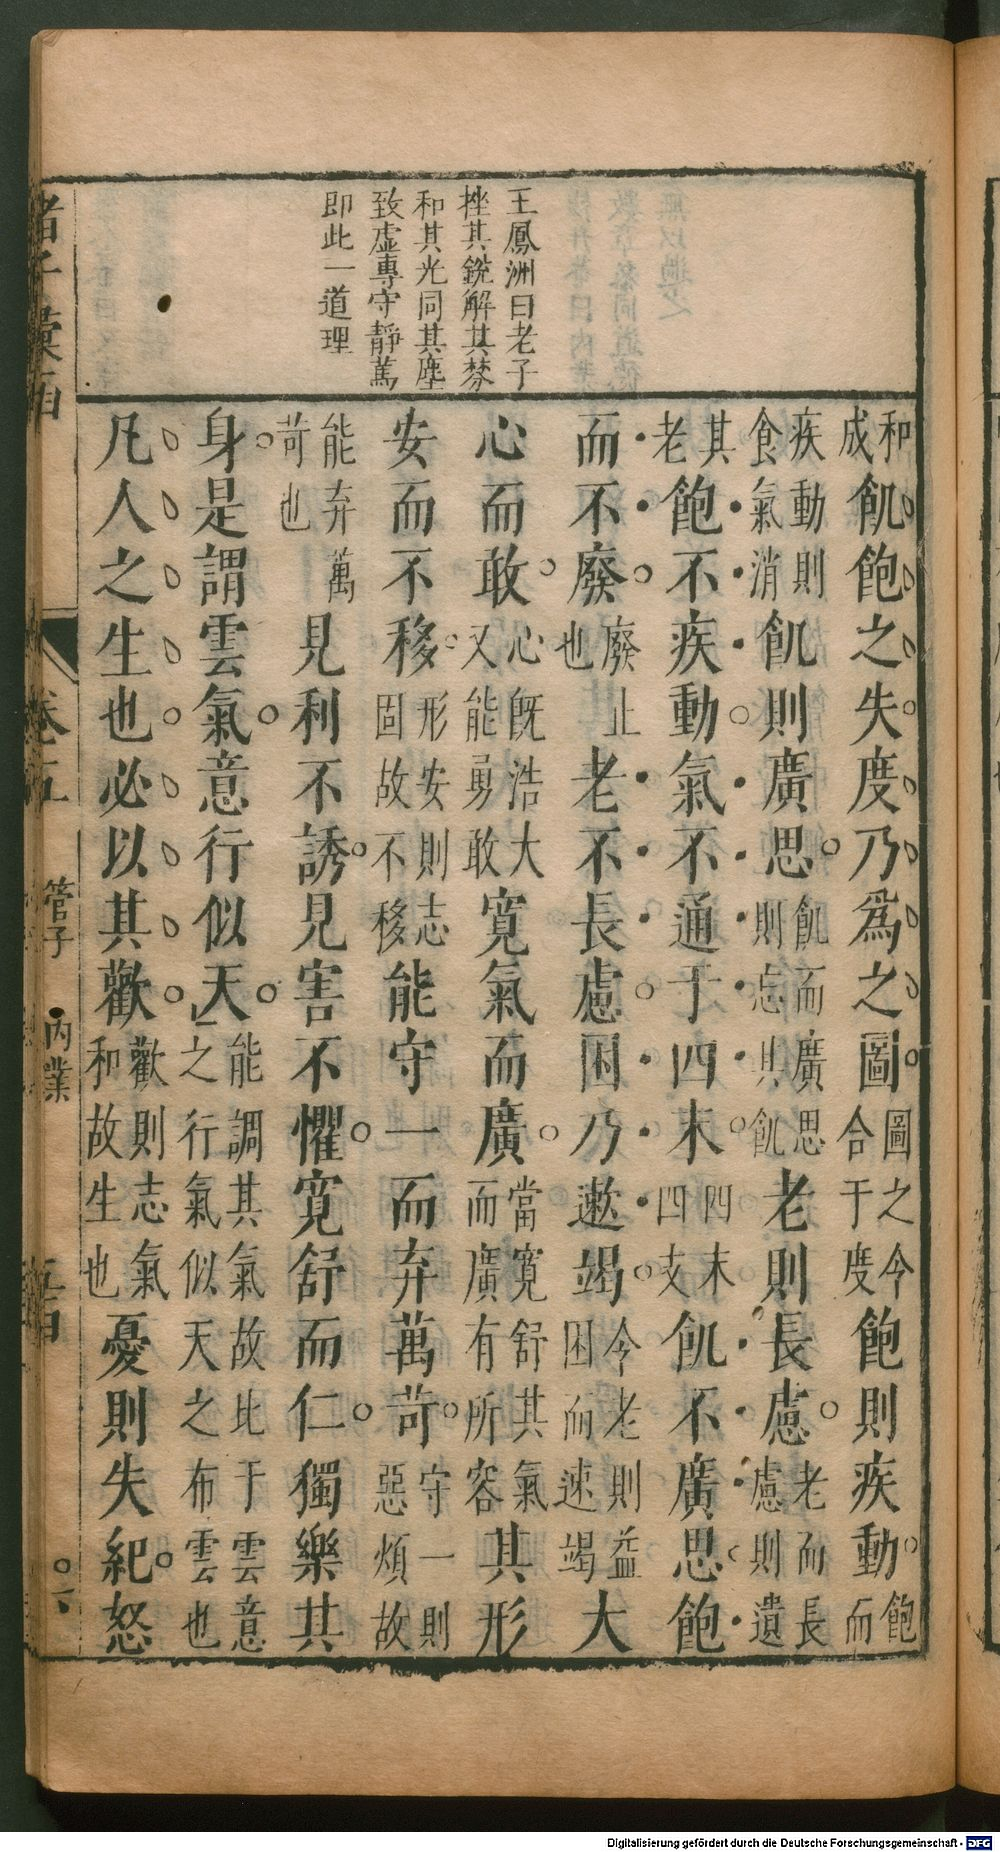 王鳳洲曰老子
挫其銳解其棼
和其光同其塵
致虛專守靜篤
即此一道理
和成飢飽之失度乃爲之圖圖之令合于度飽則疾動飽而
疾動則食氣消飢則廣思飢而廣思則忘其飢老則長慮老而長慮則遺
其老飽不疾動氣不通于四末四末四支飢不廣思飽
而不廢廢止也老不長慮困乃遬竭令老則益困而速竭大
心而敢心旣浩大又能勇敢寬氣而廣當寬舒其氣而廣有所容其形
安而不移形安則志固故不移能守一而弃萬苛守一則惡煩故
能弃萬苛也見利不誘見害不懼寬舒而仁獨樂其
身是謂雲氣意行似天能調其氣故比于雲意之行氣似天之布雲也
凡人之生也必以其歡歡則志氣和故生也憂則失紀怒
卷五
管子 內業
六
Digitalisierung gefördert durch die Deutsche Forschungsgemeinschaft - DFG